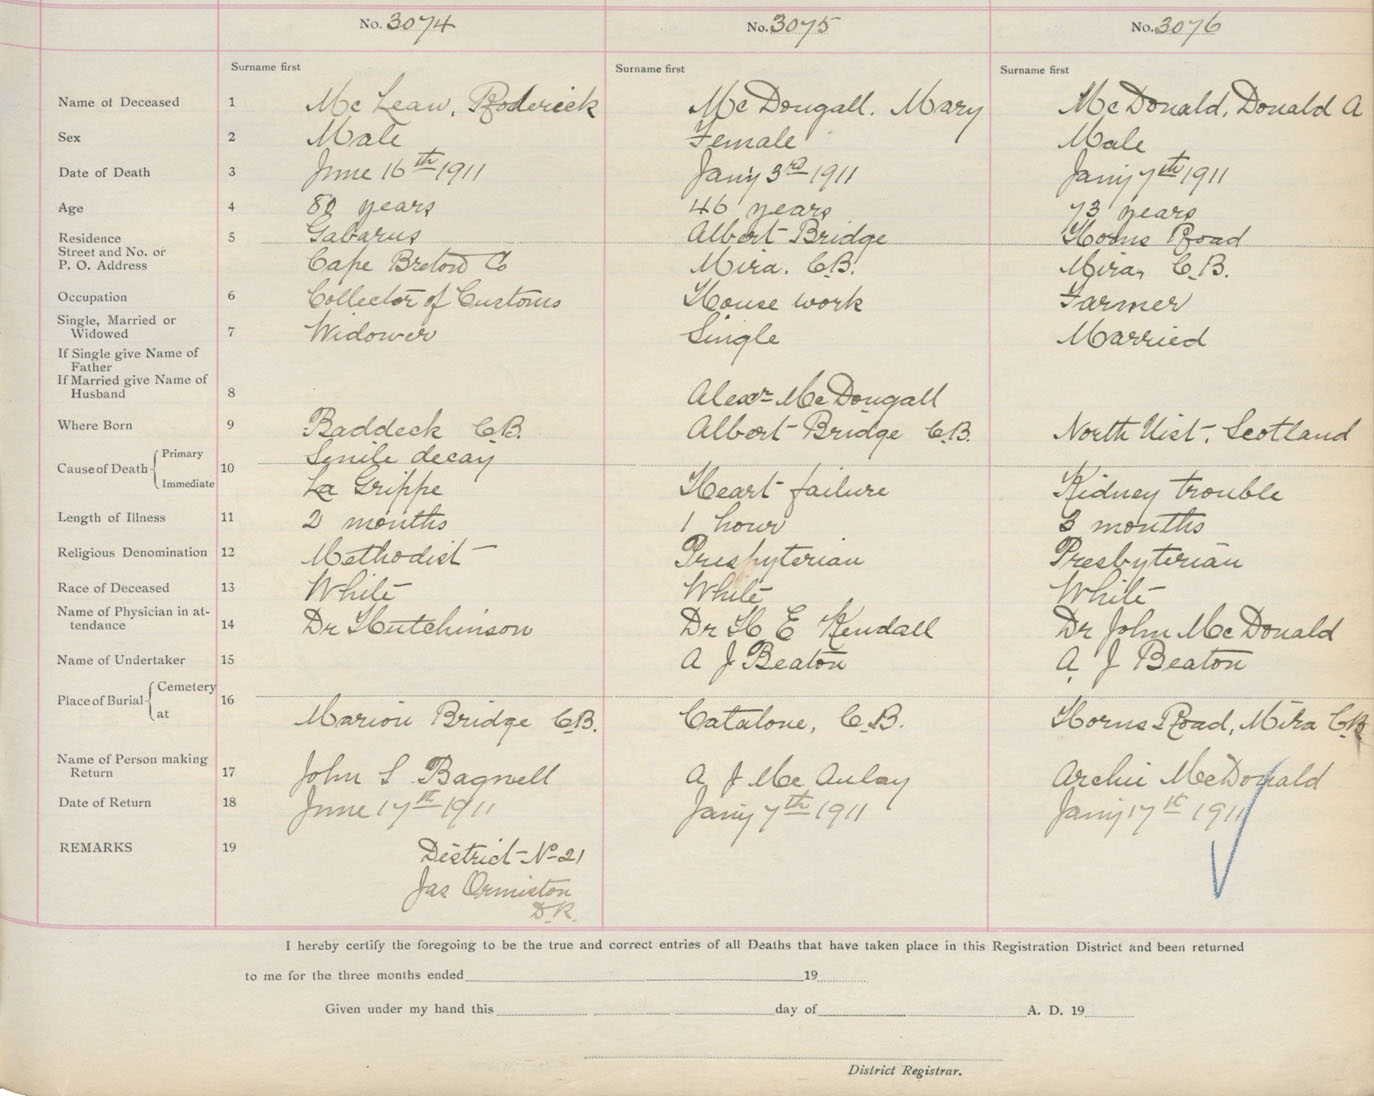 No. 3074 No. 3075 No. 3076
Surname first Surname first Surname first
Name of Deceased 1 McLean, Roderick McDougall. Mary McDonald, Donald A
Sex 2 Male Female Male
Date of Death 3 June 16th 1911 Jany 3rd 1911 Jany 7th 1911
Age 4 80 years 46 years 73 years
Residence 5 Gabarus Albert Bridge Horns Road
Street and No. or
P. O. Address Cape Breton Co Mira. C.B. Mira, C.B.
Occupation 6 Collector of Customs House work Farmer
Single, Married or
Widowed 7 Widower Single Married
If Single give Name of
Father
If Married give Name of
Husband 8 Alexr McDougall
Where Born 9 Baddeck C.B. Albert Bridge C.B. North Uist, Scotland
Cause of Death Primary 10 Senile decay
Immediate La Grippe Heart failure Kidney trouble
Length of Illness 11 2 months 1 hour 3 months
Religious Denomination 12 Methodist Presbyterian Presbyterian
Race of Deceased 13 White White White
Name of Physician in at-
tendance 14 Dr Hutchinson Dr H E Kendall Dr John McDonald
Name of Undertaker 15 A J Beaton A. J Beaton
Place of Burial Cemetery 16
at Marion Bridge C.B. Catalone, C.B. Horns Road, Mira C.B.
Name of Person making
Return 17 John S Bagnell A J McAulay Archie McDonald
Date of Return 18 June 17th 1911 Jany 7th 1911 Jany 17th 1911
REMARKS 19 District No 21
Jas Ormiston
D.R.
I hereby certify the foregoing to be the true and correct entries of all Deaths that have taken place in this Registration District and been returned
to me for the three months ended 19
Given under my hand this day of A. D. 19
District Registrar.